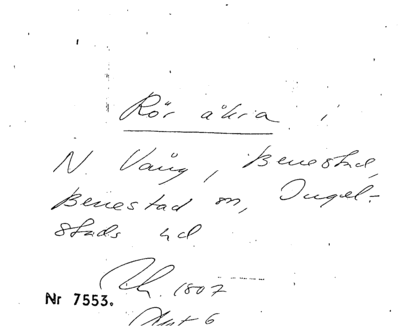 Rör åkra i
N. Vång, Benestad,
Benestad sn, Ingel-
stads hd
Ch. 1807
Nr 7553.
Akt 6